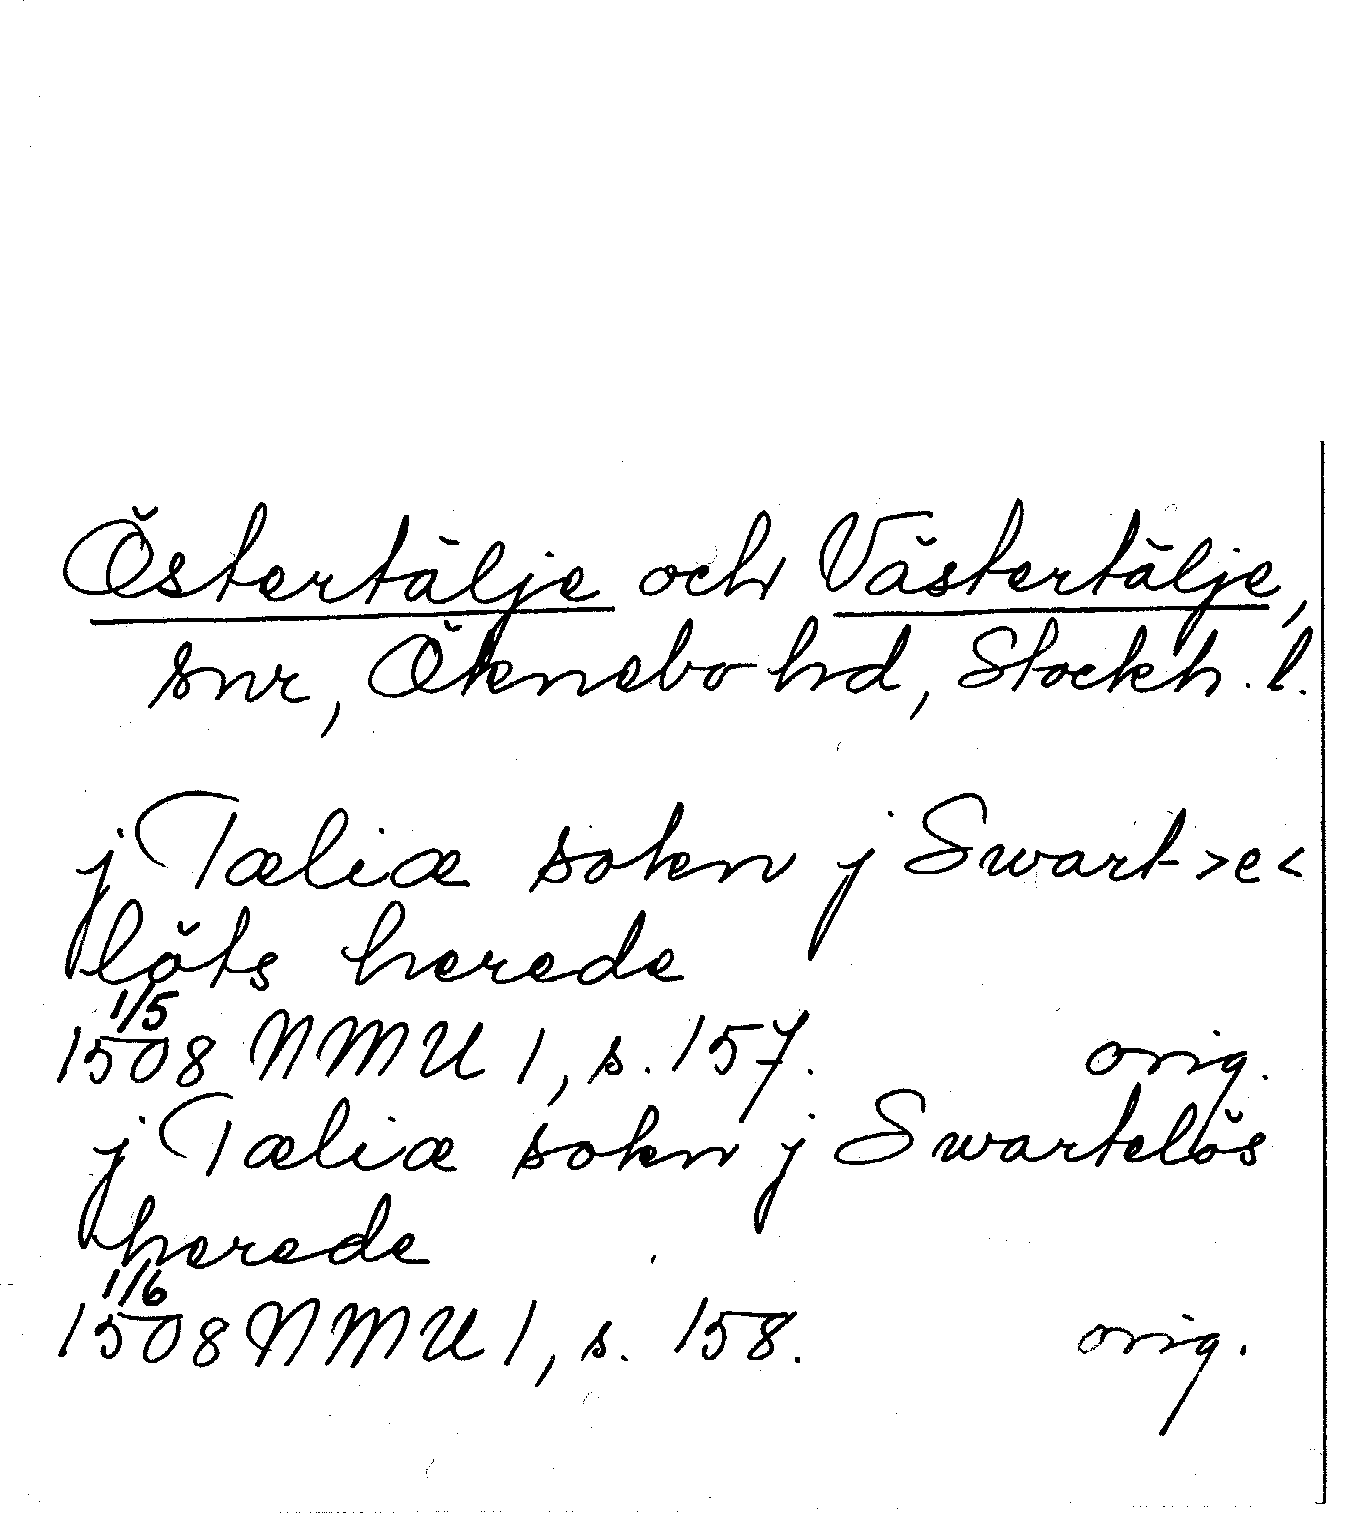 Östertälje och Västertälje,
snr, Öknebo hd, Stockh. l.
j Tæliæ sokn j Swart >e<
löts herede
1/5
1508 NMU 1, s. 157. orig.
j Tæliæ sokn j Swartelös
herede
1/6
1508 NMU 1, s. 158. orig.